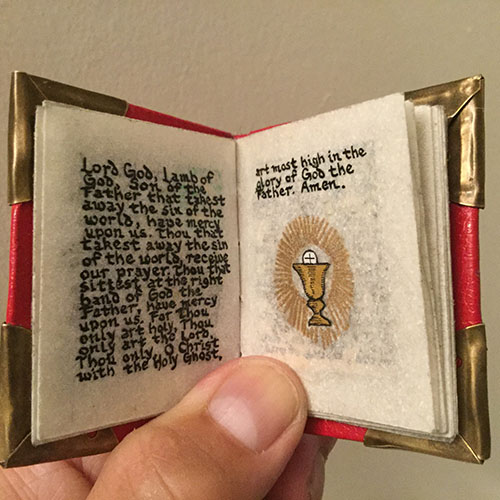 Lord God, Lamb of
God, Son of the
Father that takest
away the sin of the
world, have mercy
upon us. Thou that
takest away the sin
of the world, receive
our prayer. Thou that
sittest at the right
hand of God the
Father, have mercy
upon us. For Thou
only art holy, Thou
only art the Lord,
Thou only, O Christ
with the Holy Ghost,
art most high in the
glory of God the
Father. Amen.